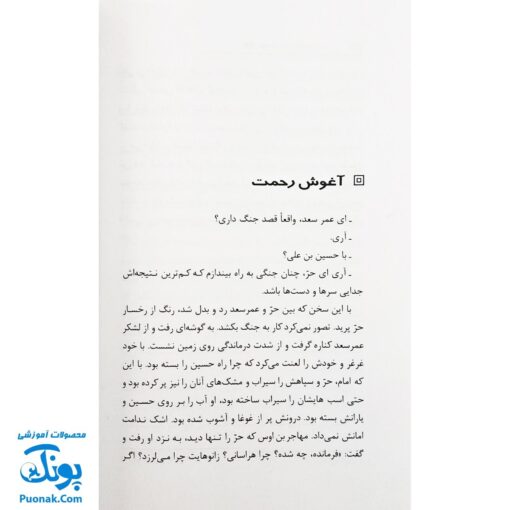 آغوش رحمت
ـ ای عمر سعد، واقعاً قصد جنگ داری؟
ـ آری.
ـ با حسین بن علی؟
ـ آری ای حرّ، چنان جنگی به راه بیندازم که کم‌ترین نتیجه‌اش
جدایی سرها و دست‌ها باشد.
با این سخن که بین حرّ و عمرسعد رد و بدل شد، رنگ از رخسار
حرّ پرید. تصور نمی‌کرد کار به جنگ بکشد. به گوشه‌ای رفت و از لشکر
عمرسعد کناره گرفت و از شدت درماندگی روی زمین نشست. با خود
غرغر و خودش را لعنت می‌کرد که چرا راه حسین را بسته بود. با این
که امام، حرّ و سپاهش را سیراب و مشک‌های آنان را نیز پر کرده بود و
حتی اسب هایشان را سیراب ساخته بود، او آب را بر روی حسین و
یارانش بسته بود. درونش پر از غوغا و آشوب شده بود. اشک ندامت
امانش نمی‌داد. مهاجربن اوس که حرّ را تنها دید، به نزد او رفت و
گفت: «فرمانده، چه شده؟ چرا هراسانی؟ زانوهایت چرا می‌لرزد؟ اگر
محصولات آموزشی
پونک
Puonak.Com